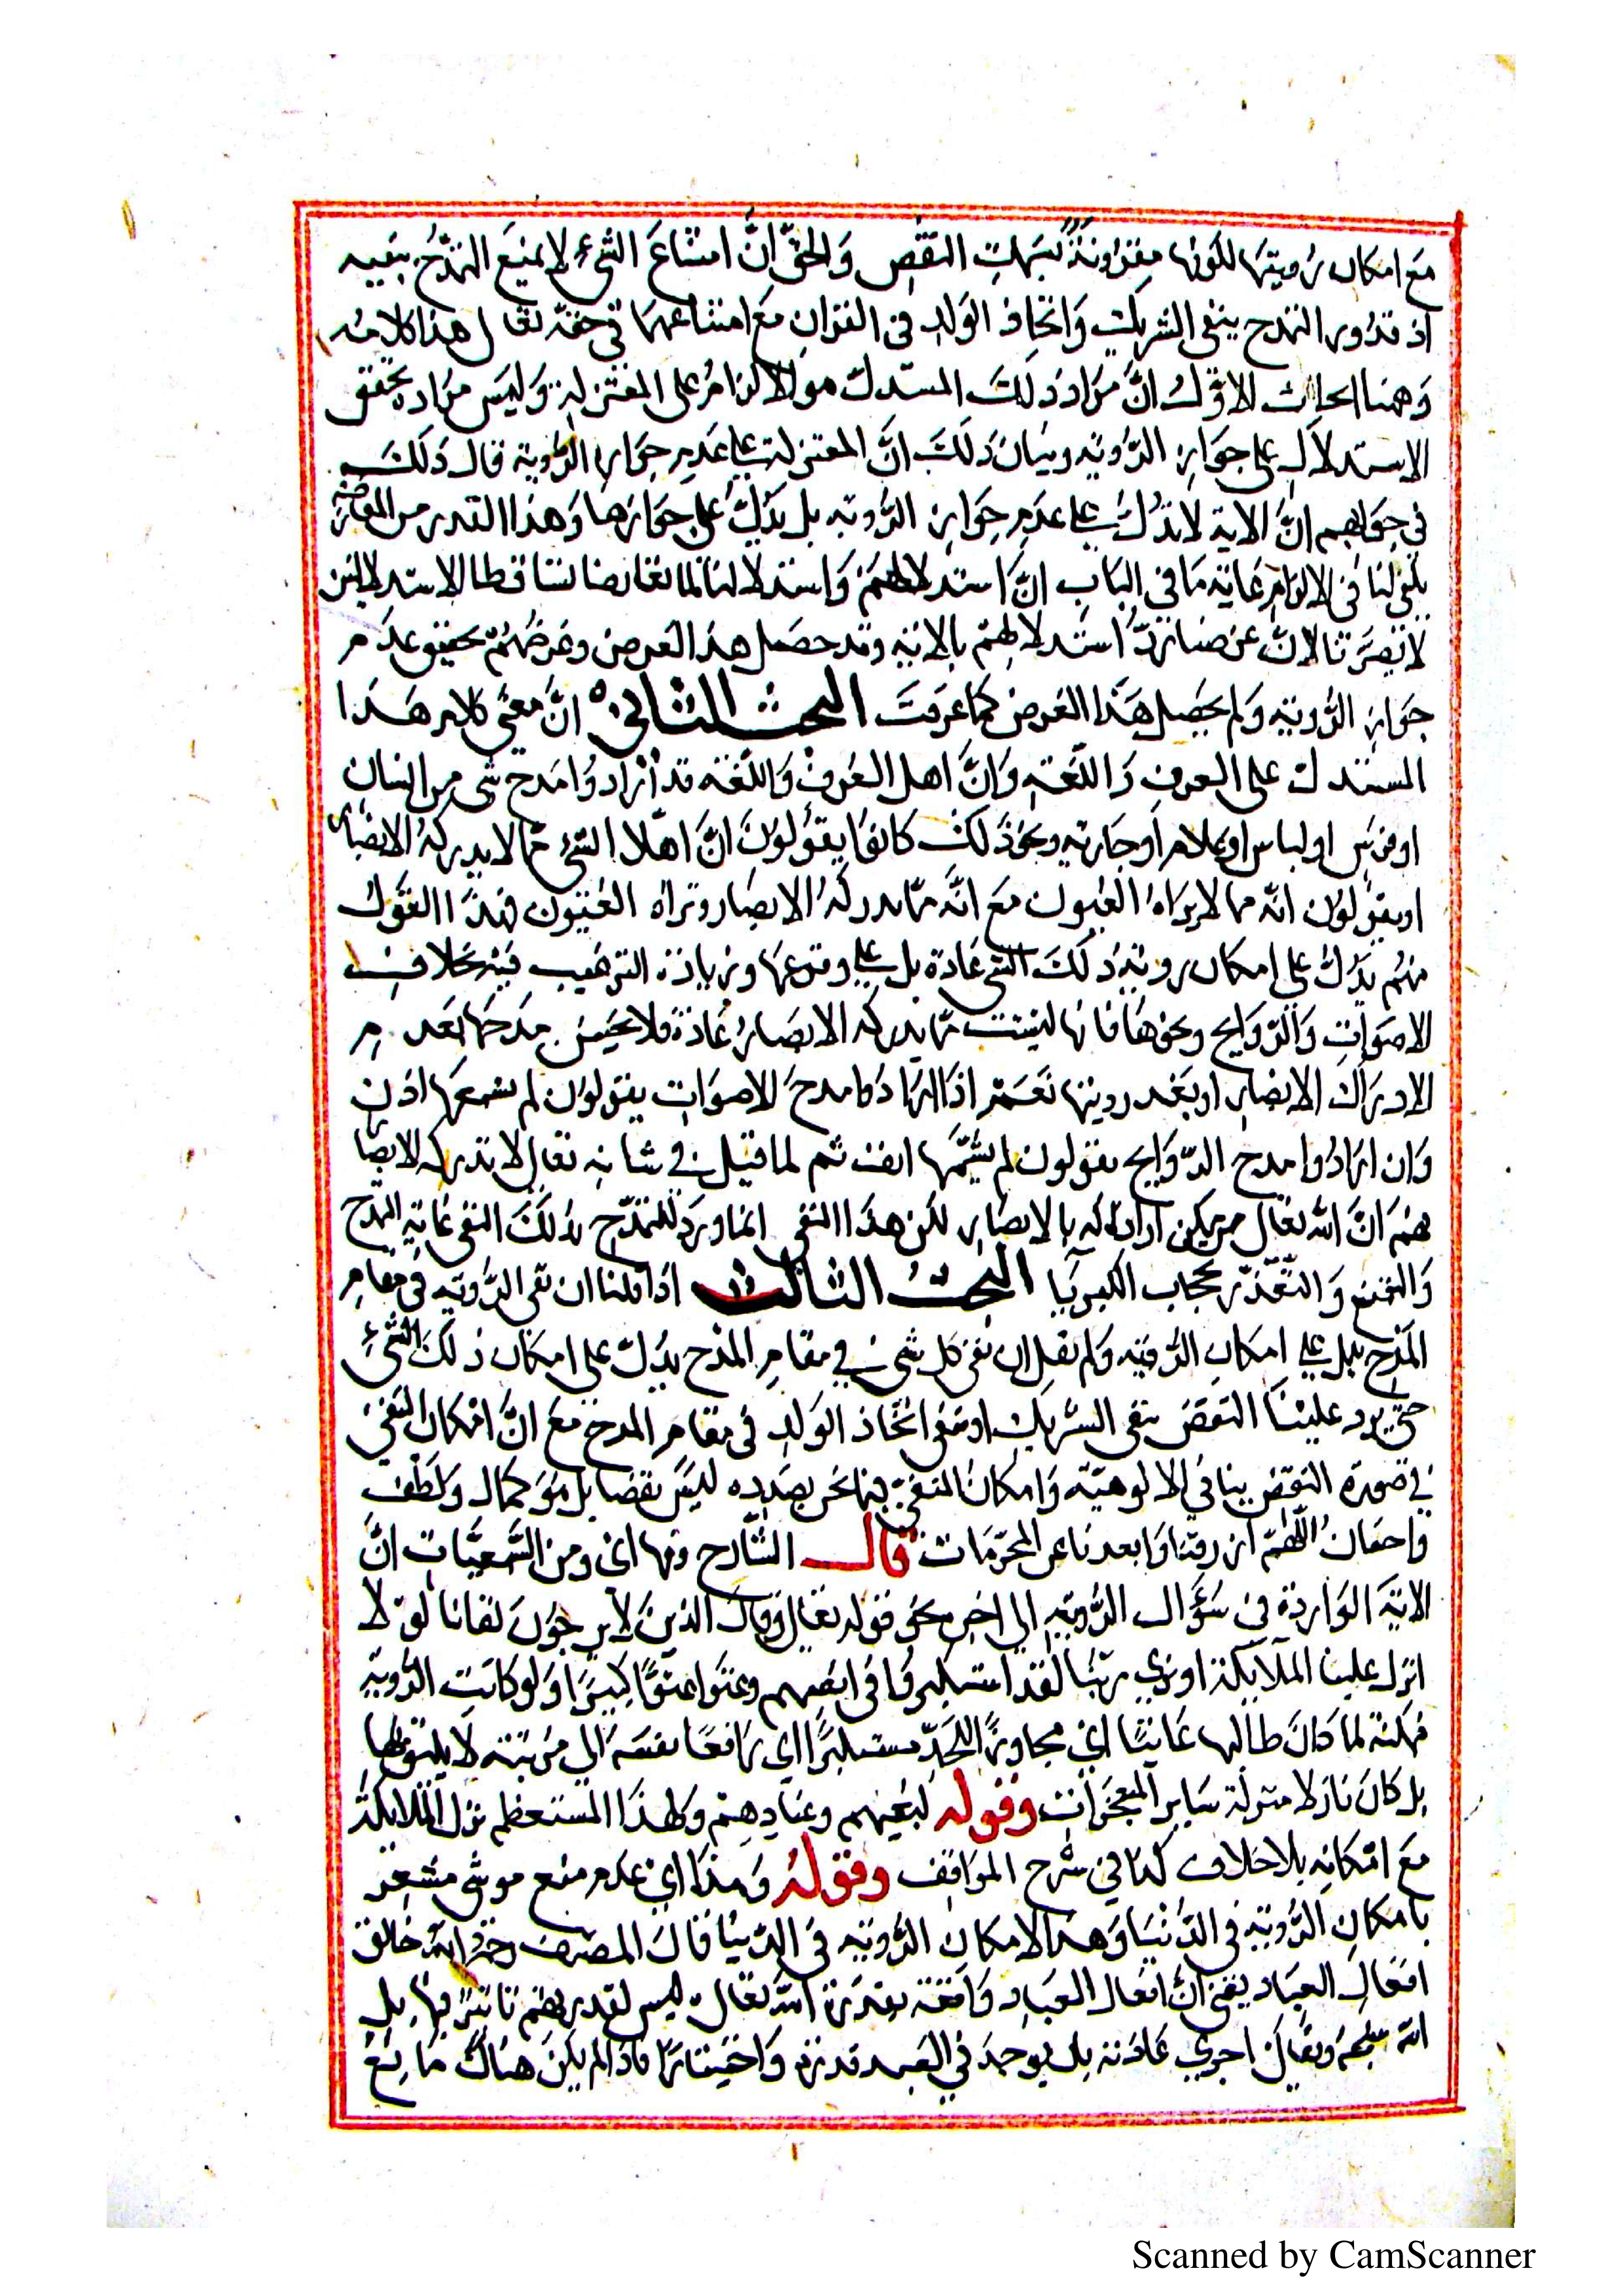 مع امكان رويتها لكونها مقرونة بسمات النقص والحق ان امتناع الشئ لا يمنع التمدح بنفيه
اذ قد ورد التمدح بنفي الشريك واتخاذ الولد في القران مع امتناعهما في حقه تعالى هذا كلامه
وههنا ابحاث الاول ان مراد ذلك المستدل هو الالزام على المعتزلة وليس مراده تحقيق
الاستدلال على جواز الروية وبيان ذلك ان المعتزلة على عدم جواز الروية قال ذلك
في جوابهم ان الاية لا تدل على عدم جواز الروية بل يدل على جوازها وهذا القدر من المعارضة
يكفي لنا في الالزام غاية ما في الباب ان استدلالهم واستدلالنا لما تعارضا تساقطا الاستدلالين
لا تضرنا لان غرضنا رد استدلالهم بالاية وقد حصل هذا الغرض وغرضهم تحقيق عدم
جواز الروية ولم يحصل هذا الغرض كما عرفت البحث الثاني ان معنى كلام هذا
المستدل على العرف واللغة وان اهل العرف واللغة قد ارادوا مدح شئ من انسان
او فرس او لباس او غلام او جارية ونحو ذلك كانوا يقولون ان هذا الشئ مما لا يدركه الابصار
او يقولون انه مما لا يراه العيون مع انه مما يدركه الابصار وتراه العيون فهذا القول
منهم يدل على امكان روية ذلك الشئ عادة بل على وقوعها وزيادة الترغيب فيه بخلاف
الاصوات والروايح ونحوها فانها ليست مما يدركه الابصار عادة فلا يحسن مدحها بعدم
الادراك الابصار او بعدم رويتها نعم اذا ارادوا مدح الاصوات يقولون لم يسمعها اذن
وان ارادوا مدح الروايح يقولون لم يشمها انف ثم لما قيل في شانه تعالى لا تدركه الابصار
فهم ان الله تعالى ممن يمكن ادراكه بالابصار لكن هذا النفي انما ورد للتمدح بذلك النفي غاية المدح
والتمنع والتعذر بحجاب الكبريا البحث الثالث اذا قلنا ان نفي الروية في مقام
المدح يدل على امكان الروية ولم نقل ان نفي كل شئ في مقام المدح يدل على امكان ذلك الشئ
حتى يرد علينا النقض بنفي الشريك او بنفي اتخاذ الولد في مقام المدح مع ان امكان المنفي
في صورة النقض ينافي الالوهية وامكان المنفي فيما نحن بصدده ليس نقصا بل هو كمال ولطف
واحسان اللهم ارزقنا وابعدنا عن المحرمات قال الشارح ومنها اي ومن السمعيات ان
الاية الواردة في سؤال الروية الى اخره نحو قوله تعالى وقال الذين لا يرجون لقانا لولا
انزل علينا الملايكة او نرى ربنا لقد استكبروا في انفسهم وعتوا عتوا كبيرا ولو كانت الروية
ممكنة لما كان طالبها عاتيا اي مجاوزا للحد مستكبرا اي رافعا نفسه الى مرتبة لا يليق بها
بل كان نازلا منزلة ساير المعجزات وقوله لتعنتهم وعنادهم ولهذا استعظم نزول الملايكة
مع امكانه بلا خلاف كذا في شرح المواقف وقوله وهذا اي عدم منع موسى مشعر
بامكان الروية في الدنيا وهذا الامكان الروية في الدنيا قال المصنف رحمه الله خالق
افعال العباد يعني ان افعال العباد واقعة بقدرة الله تعالى ليس لقدرتهم تاثير فيها بل
الله سبحانه وتعالى اجرى عادته بان يوجد في العبد قدرة واختيارا فاذا لم يكن هناك مانع
Scanned by CamScanner